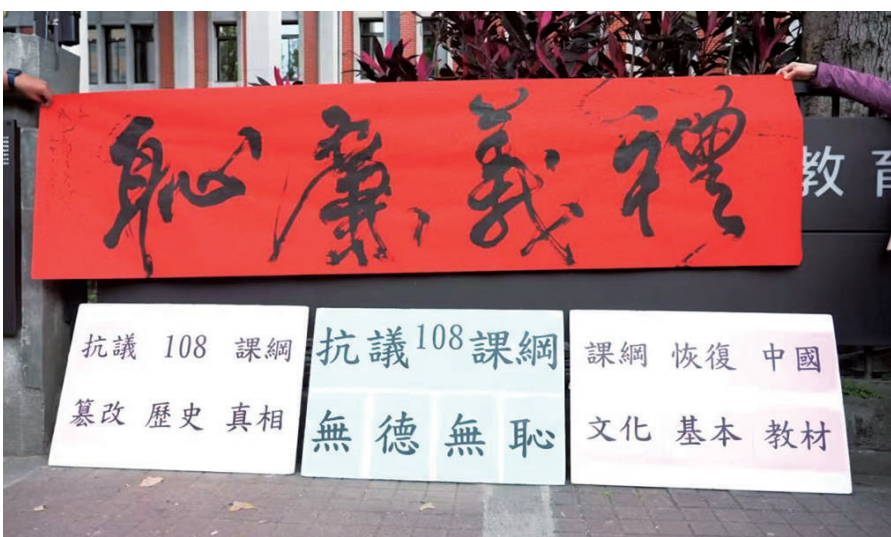 禮義廉恥
教育
抗議 108 課綱
篡改 歷史 真相
抗議108課綱
無德無恥
課綱 恢復 中國
文化 基本 教材